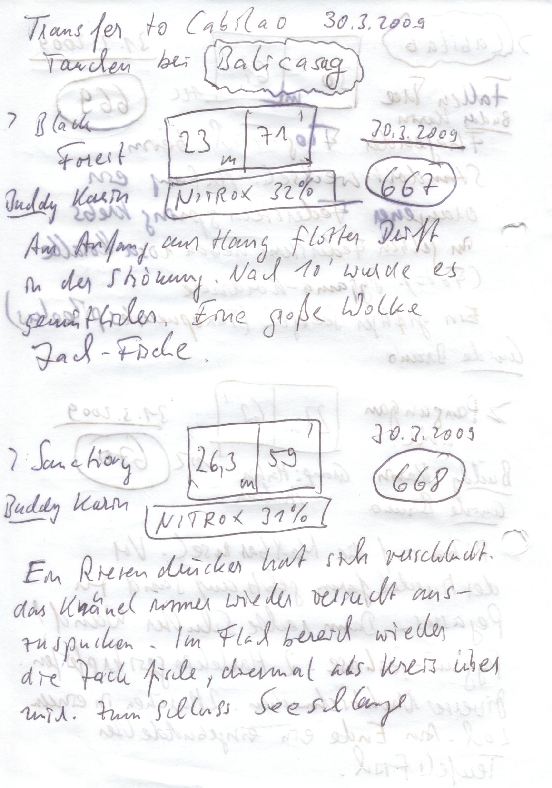 Transfer to Cabilao 30.3.2009
Tauchen bei Balicasag
> Black 23 m 71' 30.3.2009
Forest
Buddy Karin NITROX 32% 667
Am Anfang am Hang flotter Drift
in der Strömung. Nach 10' wurde es
gemütlicher. Eine große Wolke
Jack-Fische.
> Sanctiory 26,3 m 59' 30.3.2009
Buddy Karin NITROX 31% 668
Ein Riesendrücker hat sich verschluckt.
das Knäuel immer wieder versucht aus-
zuspucken. Im Flachbereich wieder
die Jackfische, dreimal als Kreis über
mir. zum Schluss Seeschlange